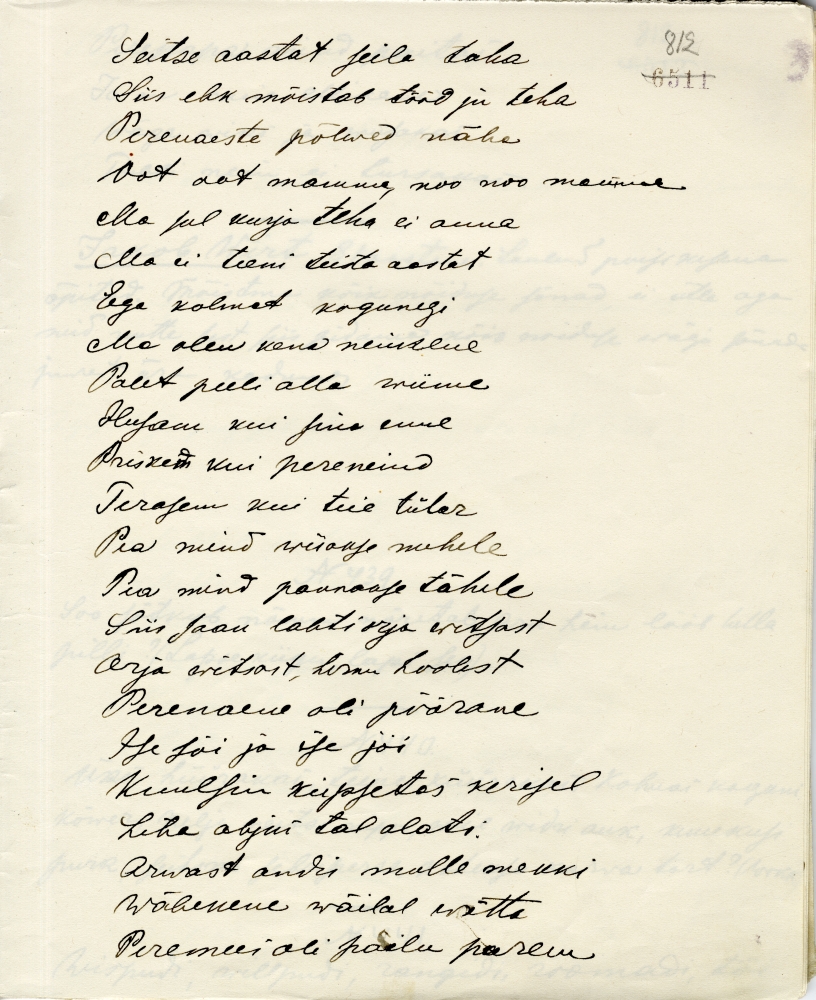 812
6511
Seitse aastat seila taha
Siis ehk mõistab tööd ju teha
Perenaeste põlwed näha
Oot oot mamma, noo noo mamma
Ma sul kurja teha ei anna
Ma ei teeni teista aastat
Ega kolmat kogunegi
Ma olen kena neiukene
Palit peeli alla
Ilusam kui sina enne
Priskem kui pereneiud
Terasem kui teie tütar
Pea mind wiiakse mehele
Pea mind pannakse tähele
Siis saan lahti orja witsast
Orja witsast, hoolest
Perenaene oli pöörane
Ise sõi ja ise jõi
Kuulsin küpsetas kerisel
Liha ahjus tal alati.
Arwast andis mulle mekki
Wähekene wäilal wõtta
Peremees oli paelu parem